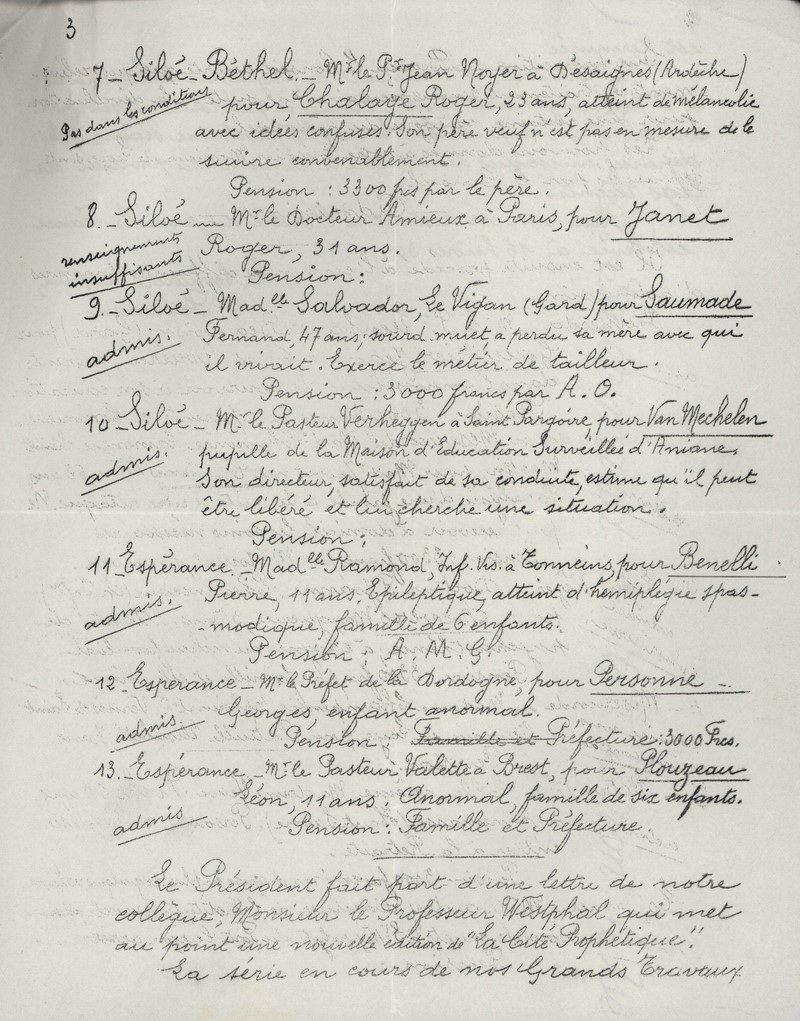 3
7_ Siloé_ Béthel._ Mr le Pr Jean Noyer à Désaignes (Ardèche)
Pas dans les conditions
pour Chalaye Roger, 23 ans, atteint de mélancolie
avec idées confuses. Son père veuf n'est pas en mesure de le
suivre convenablement.
Pension : 3300 frs par le père.
8._ Siloé _ Mr le Docteur Amieux à Paris, pour Janet
renseignements insuffisants
Roger, 31 ans.
Pension :
9._ Siloé _ Madelle Salvador, Le Vigan (Gard) pour Saumade
admis.
Fernand, 47 ans, sourd-muet, a perdu sa mère avec qui
il vivait. Exerce le métier de tailleur.
Pension : 3000 francs par A. O.
10_ Siloé _ Mr le Pasteur Verheggen à Saint Pargoire, pour Van Mechelen
admis.
pupille de la Maison d'Education Surveillée d'Aniane.
Son directeur, satisfait de sa conduite, estime qu'il peut
être libéré et lui cherche une situation.
Pension :
11_ Espérance._ Madelle Ramond, Inf. Vis. à Tonneins, pour Benelli
admis.
Pierre, 11 ans. Epileptique, atteint d'hémiplégie spas-
-modique, famille de 6 enfants.
Pension : A. M. G.
12_ Esperance _ Mr le Préfet de la Dordogne, pour Personne _.
admis
Georges, enfant anormal.
Pension : Famille et Préfecture : 3000 Frcs.
13._ Espérance _ Mr le Pasteur Valette à Brest, pour Plouzeau
admis
Léon, 11 ans. Anormal, famille de six enfants.
Pension : Famille et Préfecture.
Le Président fait part d'une lettre de notre
collègue, Monsieur le Professeur Westphal qui met
au point une nouvelle édition de "La Cité Prophétique".
La série en cours de nos Grands Travaux